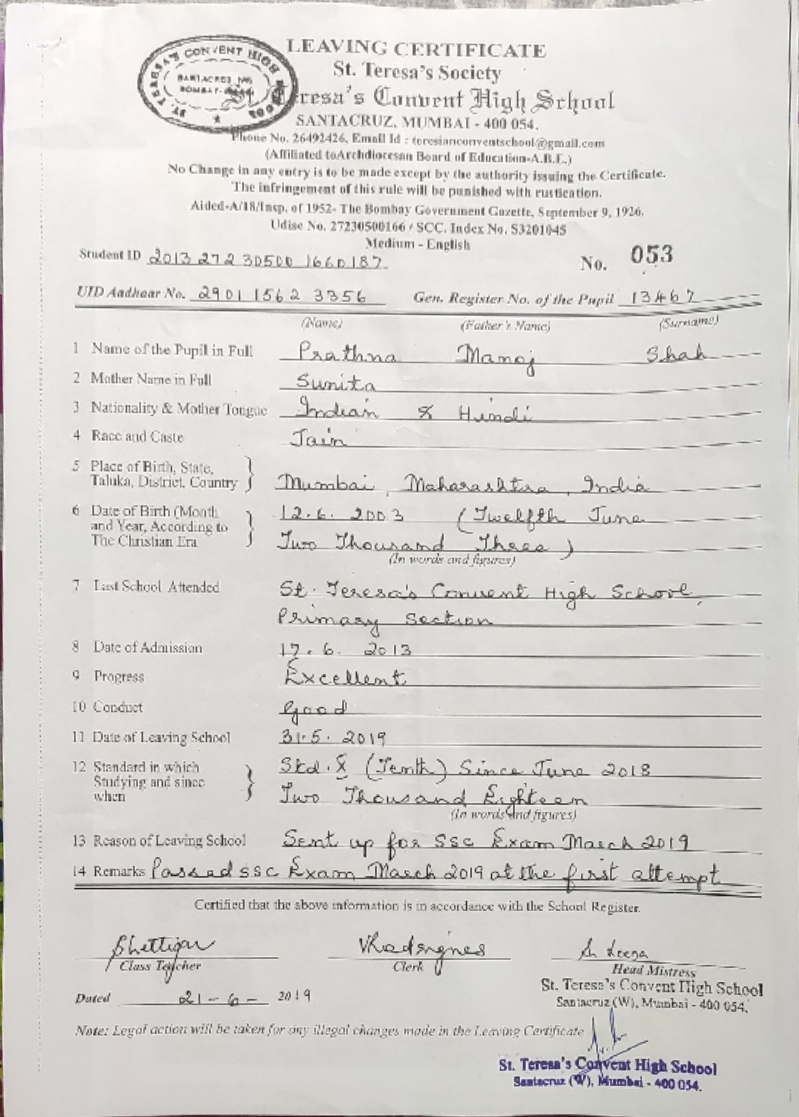 LEAVING CERTIFICATE
St. Teresa's Society
St. Teresa's Convent High School
ST. TERESA'S CONVENT HIGH
SANTACRUZ, MUMBAI - 400 054.
Phone No. 26492426, Email Id : teresianconventschool@gmail.com
(Affiliated toArchdiocesan Board of Education-A.B.E.)
No Change in any entry is to be made except by the authority issuing the Certificate.
The infringement of this rule will be punished with rustication.
Aided-A/18/Insp. of 1952- The Bombay Government Gazette, September 9, 1926.
Udise No. 27230500166 / SCC. Index No. S3201045
Medium - English
Student ID 2013 272 30500 1660187
No. 053
UID Aadhaar No. 2901 1562 3356 Gen. Register No. of the Pupil 13467
(Name) (Father's Name) (Surname)
1 Name of the Pupil in Full Prathna Manoj Shah
2 Mother Name in Full Sunita
3 Nationality & Mother Tongue Indian & Hindi
4 Race and Caste Jain
5 Place of Birth, State,
Taluka, District, Country Mumbai, Maharashtra, India
6 Date of Birth (Month 12.6.2003 (Twelfth June
and Year, According to
The Christian Era Two Thousand Three)
(In words and figures)
7 Last School Attended St. Teresa's Convent High School,
Primary Section
8 Date of Admission 17.6.2013
9 Progress Excellent
10 Conduct Good
11 Date of Leaving School 31.5.2019
12 Standard in which Std. X (Tenth) Since June 2018
Studying and since
when Two Thousand Eighteen
(In words and figures)
13 Reason of Leaving School Sent up for SSC Exam March 2019
14 Remarks Passed SSC Exam March 2019 at the first attempt
Certified that the above information is in accordance with the School Register.
Class Teacher Clerk Head Mistress
St. Teresa's Convent High School
Santacruz (W), Mumbai - 400 054.
Dated 21-6-2019
Note: Legal action will be taken for any illegal changes made in the Leaving Certificate
St. Teresa's Convent High School
Santacruz (W), Mumbai - 400 054.